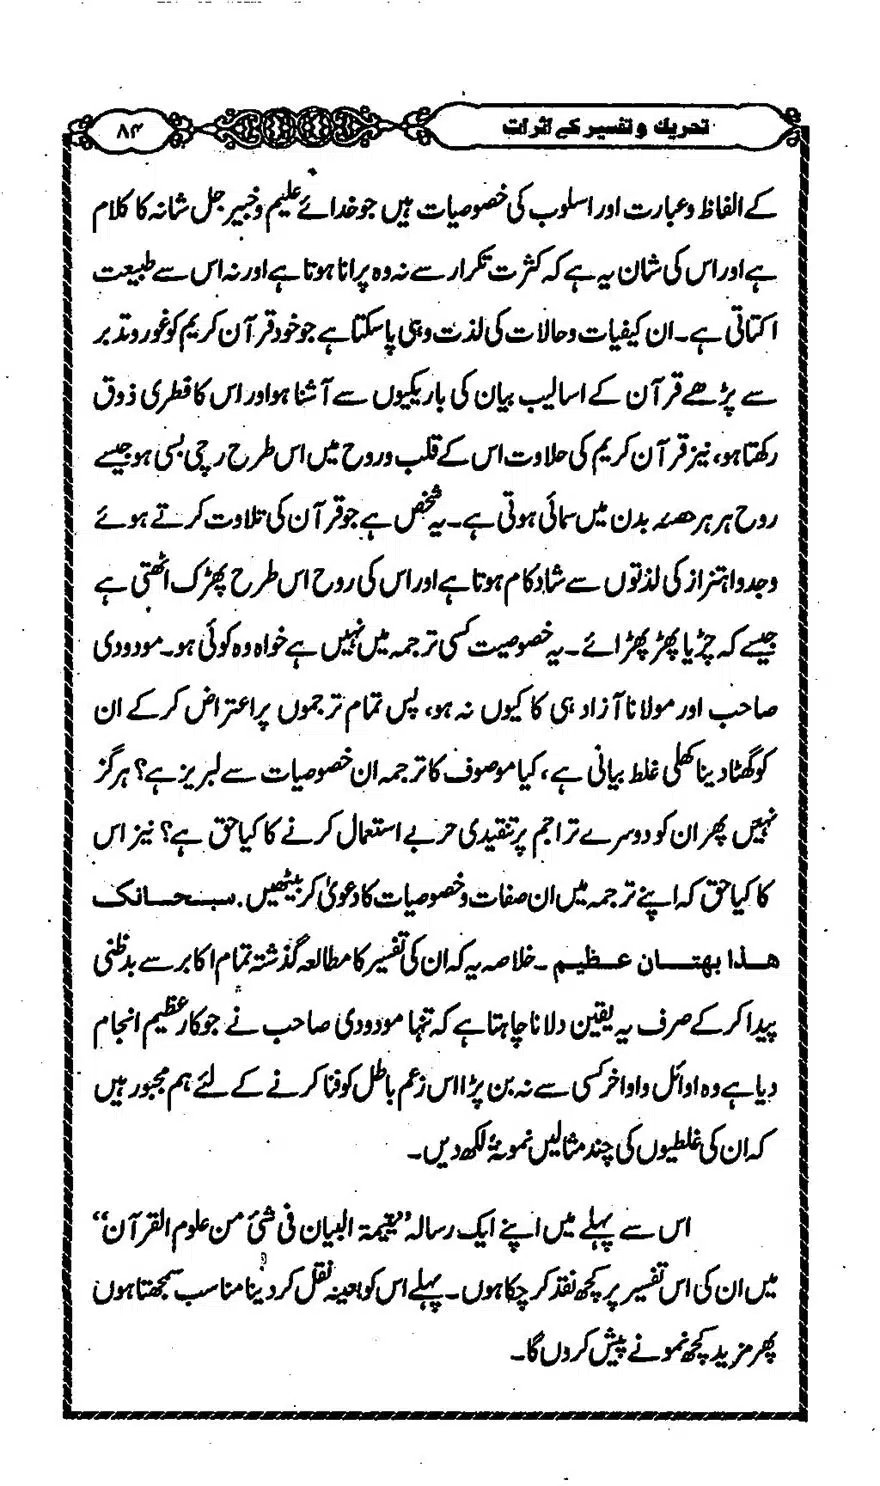 تحریک و تفسیر کے اثرات
۸۴
کے الفاظ وعبارت اور اسلوب کی خصوصیات ہیں جو خدائے علیم وخبیر جل شانہ کا کلام
ہے اور اس کی شان یہ ہے کہ کثرت تکرار سے نہ وہ پرانا ہوتا ہے اور نہ اس سے طبیعت
اکتاتی ہے۔ ان کیفیات وحالات کی لذت وہی پاسکتا ہے جو خود قرآن کریم کو غور وتدبر
سے پڑھے قرآن کے اسالیب بیان کی باریکیوں سے آشنا ہو اور اس کا فطری ذوق
رکھتا ہو، نیز قرآن کریم کی حلاوت اس کے قلب وروح میں اس طرح رچی بسی ہو جیسے
روح ہر ہر حصہ بدن میں سمائی ہوتی ہے۔ یہ شخص ہے جو قرآن کی تلاوت کرتے ہوئے
وجد واہتزاز کی لذتوں سے شاد کام ہوتا ہے اور اس کی روح اس طرح پھڑک اٹھتی ہے
جیسے کہ چڑیا پھڑ پھڑائے۔ یہ خصوصیت کسی ترجمہ میں نہیں ہے خواہ وہ کوئی ہو۔ مودودی
صاحب اور مولانا آزاد ہی کا کیوں نہ ہو، پس تمام ترجموں پر اعتراض کر کے ان
کو گھٹا دینا کھلی غلط بیانی ہے، کیا موصوف کا ترجمہ ان خصوصیات سے لبریز ہے؟ ہرگز
نہیں پھر ان کو دوسرے تراجم پر تنقیدی حربے استعمال کرنے کا کیا حق ہے؟ نیز اس
کا کیا حق کہ اپنے ترجمہ میں ان صفات وخصوصیات کا دعویٰ کر بیٹھیں. سبحانک
ھذا بھتان عظیم ۔ خلاصہ یہ کہ ان کی تفسیر کا مطالعہ گذشتہ تمام اکابر سے بدظنی
پیدا کر کے صرف یہ یقین دلانا چاہتا ہے کہ تنہا مودودی صاحب نے جو کار عظیم انجام
دیا ہے وہ اوائل واواخر کسی سے نہ بن پڑا اس زعم باطل کو فنا کرنے کے لئے ہم مجبور ہیں
کہ ان کی غلطیوں کی چند مثالیں نمونۃً لکھ دیں۔
اس سے پہلے میں اپنے ایک رسالہ ”یتیمۃ البیان فی شئ من علوم القرآن“
میں ان کی اس تفسیر پر کچھ نقد کر چکا ہوں۔ پہلے اس کو بعینہ نقل کر دینا مناسب سمجھتا ہوں
پھر مزید کچھ نمونے پیش کروں گا۔